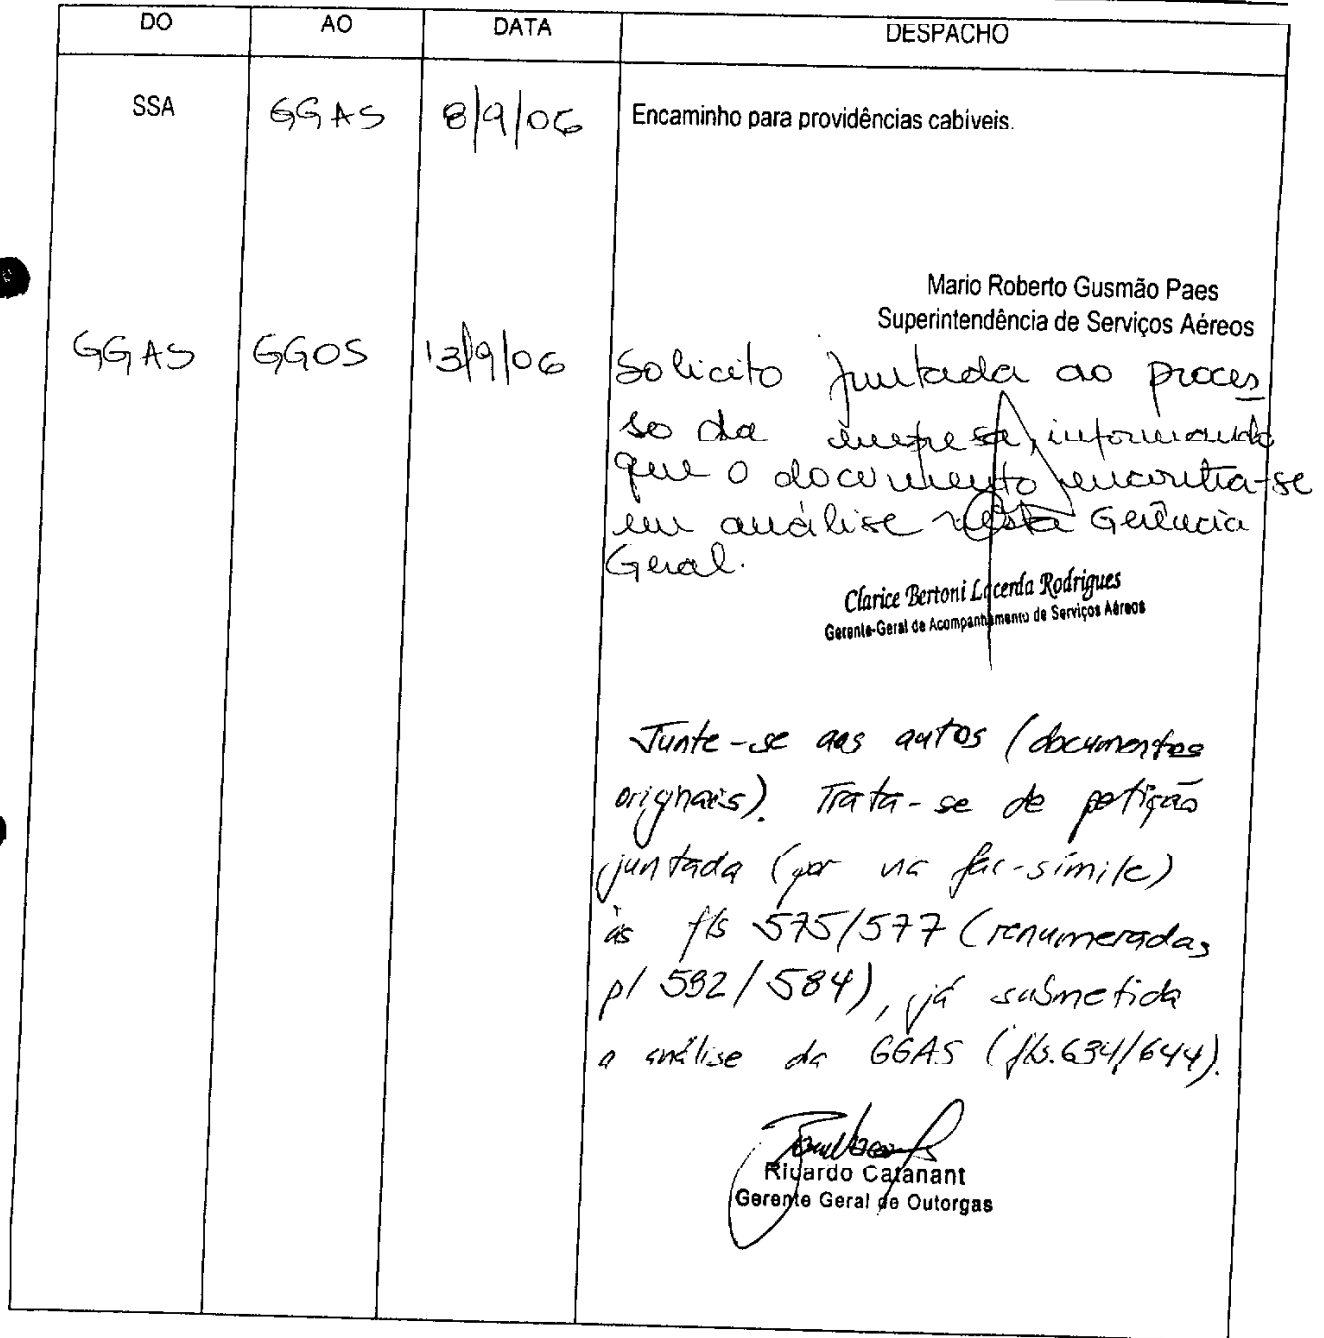 DO AO DATA DESPACHO
SSA GGAS 8/9/06 Encaminho para providências cabíveis.
Mario Roberto Gusmão Paes
Superintendência de Serviços Aéreos
GGAS GGOS 13/9/06 Solicito juntada ao proces
so da empresa, informando
que o documento encontra-se
em análise nesta Gerência
Geral.
Clarice Bertoni Lacerda Rodrigues
Gerente-Geral de Acompanhamento de Serviços Aéreos
Junte-se aos autos (documentos
originais). Trata-se de petição
juntada (por via fac-símile)
às fls 575/577 (renumeradas
p/ 582/584), já submetida
a análise da GGAS (fls. 634/644).
Ricardo Catanant
Gerente Geral de Outorgas